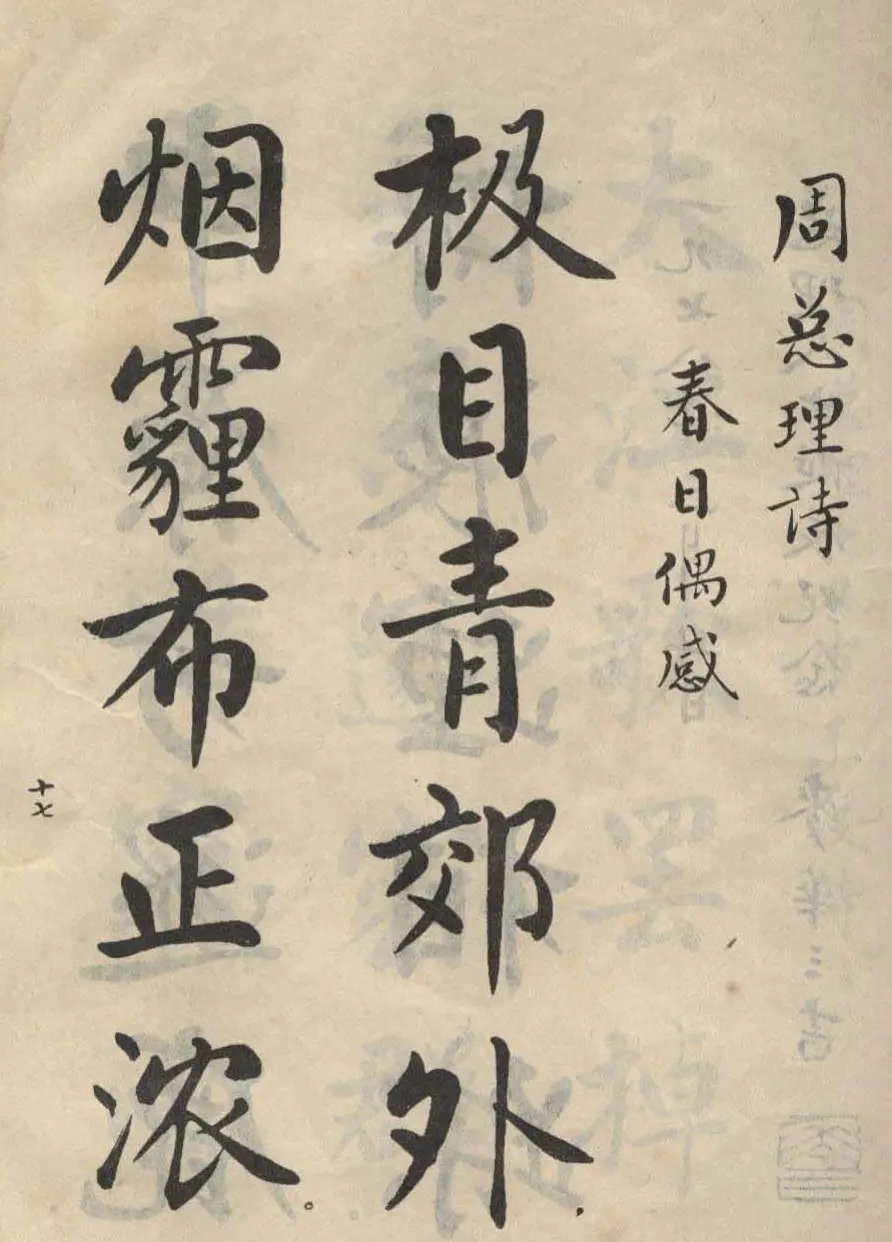 周总理詩
春日偶感
极目青郊外，
烟霾布正浓。
十七